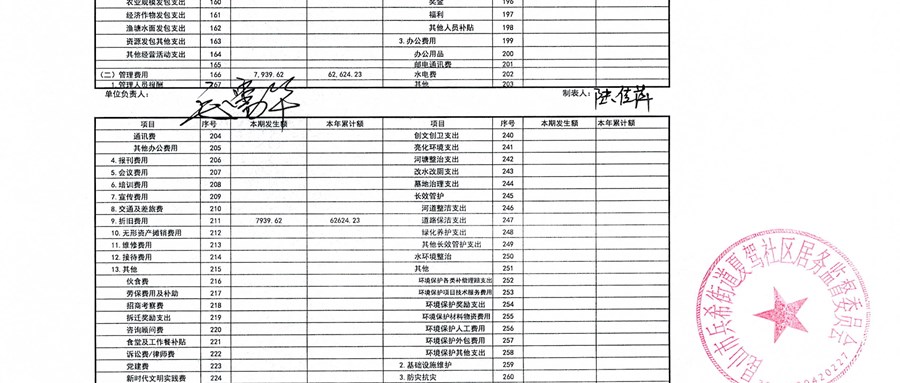 农业规模发包支出 160 奖金 196
经济作物发包支出 161 福利 197
渔塘水面发包支出 162 其他人员补贴 198
资源发包其他支出 163 3. 办公费用 199
其他经营活动支出 164 办公用品 200
165 邮电通讯费 201
(二)管理费用 166 7,939.62 62,624.23 水电费 202
1. 管理人员报酬 167 其他 203
单位负责人: 制表人:
项目 序号 本期发生额 本年累计额 项目 序号 本期发生额 本年累计额
通讯费 204 创文创卫支出 240
其他办公费用 205 亮化环境支出 241
4. 报刊费用 206 河塘整治支出 242
5. 会议费用 207 改水改厕支出 243
6. 培训费用 208 墓地治理支出 244
7. 宣传费用 209 长效管护 245
8. 交通及差旅费 210 河道整洁支出 246
9. 折旧费用 211 7939.62 62624.23 道路保洁支出 247
10. 无形资产摊销费用 212 绿化养护支出 248
11. 维修费用 213 其他长效管护支出 249
12. 接待费用 214 水环境整治 250
13. 其他 215 其他 251
伙食费 216 环境保护各类补偿理赔支出 252
劳保费用及补助 217 环境保护项目技术服务费用 253
招商考察费 218 环境保护奖励支出 254
拆迁奖励支出 219 环境保护材料物资费用 255
咨询顾问费 220 环境保护人工费用 256
食堂及工作餐补贴 221 环境保护外包费用 257
诉讼费/律师费 222 环境保护其他支出 258
党建费 223 2. 基础设施维护 259
新时代文明实践费 224 3. 防灾抗灾 260
昆山市兵希街道夏驾社区居务监督委员会